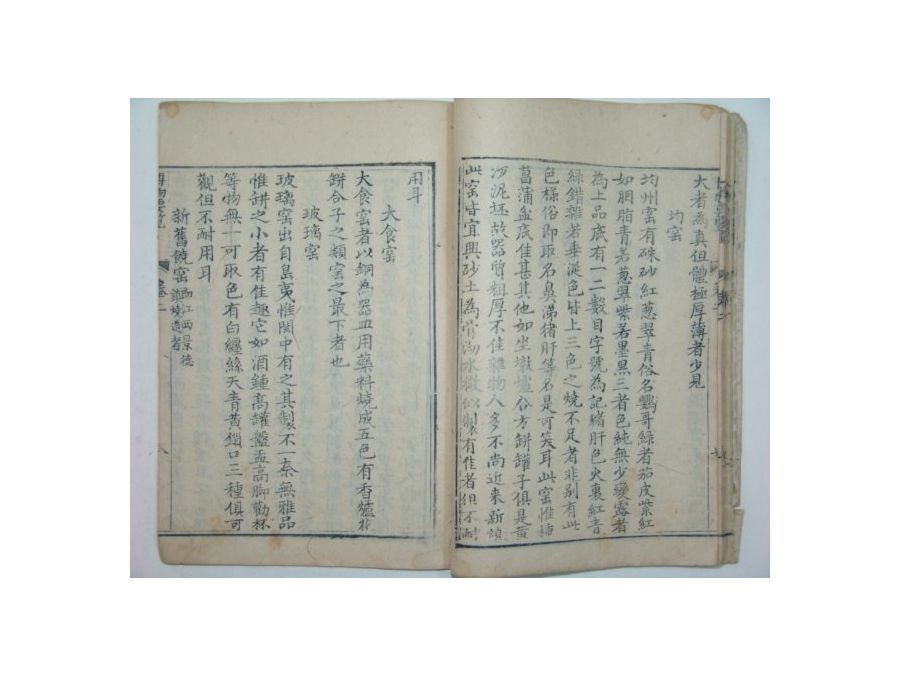 大者為真但體極厚薄者少見
均窑
均州窑有硃砂紅蔥翠青俗名鸚哥綠者茄皮紫紅
如胭脂青若蔥翠紫若墨黑三者色純無少變露者
為上品底有一二數目字號為記豬肝色火裏紅青
綠錯雜若垂涎色皆上三色之燒不足者非別有此
色樣俗即取名鼻涕猪肝等名是可笑耳此窑惟種
菖蒲盆底佳甚其他如坐墩爐合方缾罐子俱是黃
沙泥坯故器質粗厚不佳雜物人多不尚近来新燒
此窑皆宜興砂土為骨泑水微似製有佳者但不耐
用耳
大食窑
大食窑者以銅為器皿用藥料燒成五色有香爐花
缾合子之類窑之最下者也
玻璃窑
玻璃窑出自島夷惟閩中有之其製不一奈無雅品
惟缾之小者有佳趣它如酒鍾高罐盤盂高脚勸杯
等物無一可取色有白纏絲天青黃鎖口三種俱可
觀但不耐用耳
新舊饒窑
即江西景德
鎮燒造者
卷二
八